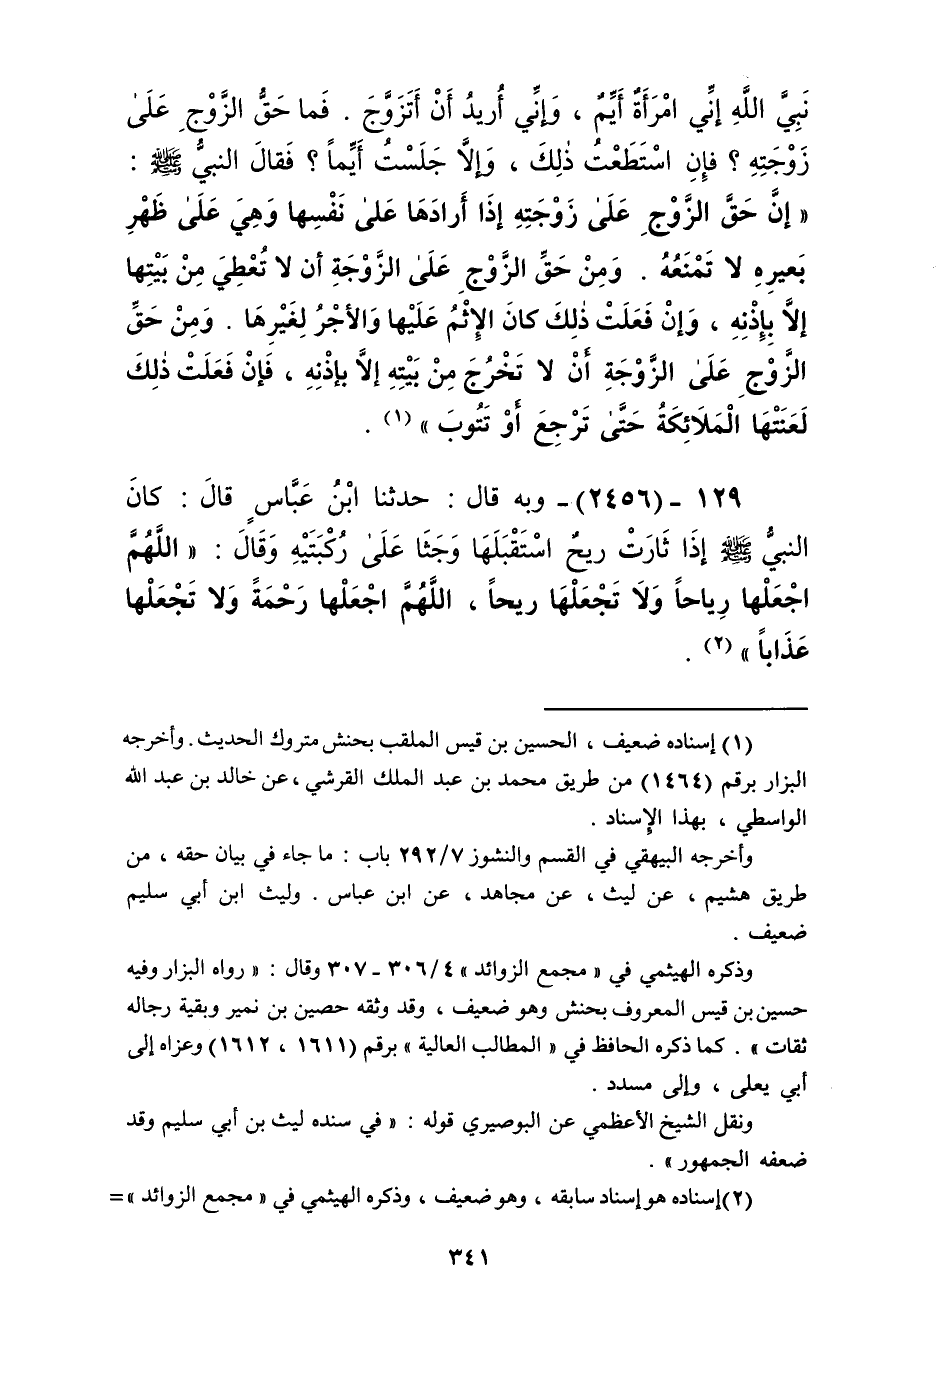 نَبِيَّ اللَّهِ إِنِّي امْرَأَةٌ أَيِّمٌ ، وَإِنِّي أُرِيدُ أَنْ أَتَزَوَّجَ . فَما حَقُّ الزَّوْجِ عَلَىٰ
زَوْجَتِهِ ؟ فإِنِ اسْتَطَعْتُ ذٰلِكَ ، وَإِلاَّ جَلَسْتُ أَيِّماً ؟ فَقالَ النبيُّ ﷺ :
« إنَّ حَقَّ الزَّوْجِ عَلَىٰ زَوْجَتِهِ إذَا أَرادَهَا عَلىٰ نَفْسِها وَهِيَ عَلَىٰ ظَهْرِ
بَعيرِهِ لا تَمْنَعُهُ . وَمِنْ حَقِّ الزَّوْجِ عَلَىٰ الزَّوْجَةِ أن لا تُعْطِيَ مِنْ بَيْتِها
إلاَّ بِإذْنِهِ ، وَإنْ فَعَلَتْ ذٰلِكَ كانَ الإثْمُ عَلَيْها وَالأجْرُ لِغَيْرِهَا . وَمِنْ حَقِّ
الزَّوْجِ عَلَىٰ الزَّوْجَةِ أَنْ لا تَخْرُجَ مِنْ بَيْتِهِ إلاَّ بإذْنِهِ ، فَإنْ فَعَلَتْ ذٰلِكَ
لَعَنَتْهَا الْمَلَائِكَةُ حَتَّىٰ تَرْجِعَ أَوْ تَتُوبَ » (١) .
١٢٩ - (٢٤٥٦) - وبه قال : حدثنا ابْنُ عَبَّاسٍ قالَ : كانَ
النبيُّ ﷺ إذَا ثَارَتْ ريحٌ اسْتَقْبَلَهَا وَجَثَا عَلَىٰ رُكْبَتَيْهِ وَقَالَ : « اللَّهُمَّ
اجْعَلْها رِياحاً وَلَا تَجْعَلْهَا ريحاً ، اللَّهُمَّ اجْعَلْها رَحْمَةً وَلا تَجْعَلْها
عَذَاباً » (٢) .
(١) إسناده ضعيف ، الحسين بن قيس الملقب بحنش متروك الحديث . وأخرجه
البزار برقم (١٤٦٤) من طريق محمد بن عبد الملك القرشي ، عن خالد بن عبد الله
الواسطي ، بهذا الإسناد .
وأخرجه البيهقي في القسم والنشوز ٢٩٢/٧ باب : ما جاء في بيان حقه ، من
طريق هشيم ، عن ليث ، عن مجاهد ، عن ابن عباس . وليث ابن أبي سليم
ضعيف .
وذكره الهيثمي في « مجمع الزوائد » ٣٠٦/٤ - ٣٠٧ وقال : « رواه البزار وفيه
حسين بن قيس المعروف بحنش وهو ضعيف ، وقد وثقه حصين بن نمير وبقية رجاله
ثقات » . كما ذكره الحافظ في « المطالب العالية » برقم (١٦١١ ، ١٦١٢) وعزاه إلى
أبي يعلى ، وإلى مسدد .
ونقل الشيخ الأعظمي عن البوصيري قوله : « في سنده ليث بن أبي سليم وقد
ضعفه الجمهور » .
(٢) إسناده هو إسناد سابقه ، وهو ضعيف ، وذكره الهيثمي في « مجمع الزوائد » =
٣٤١